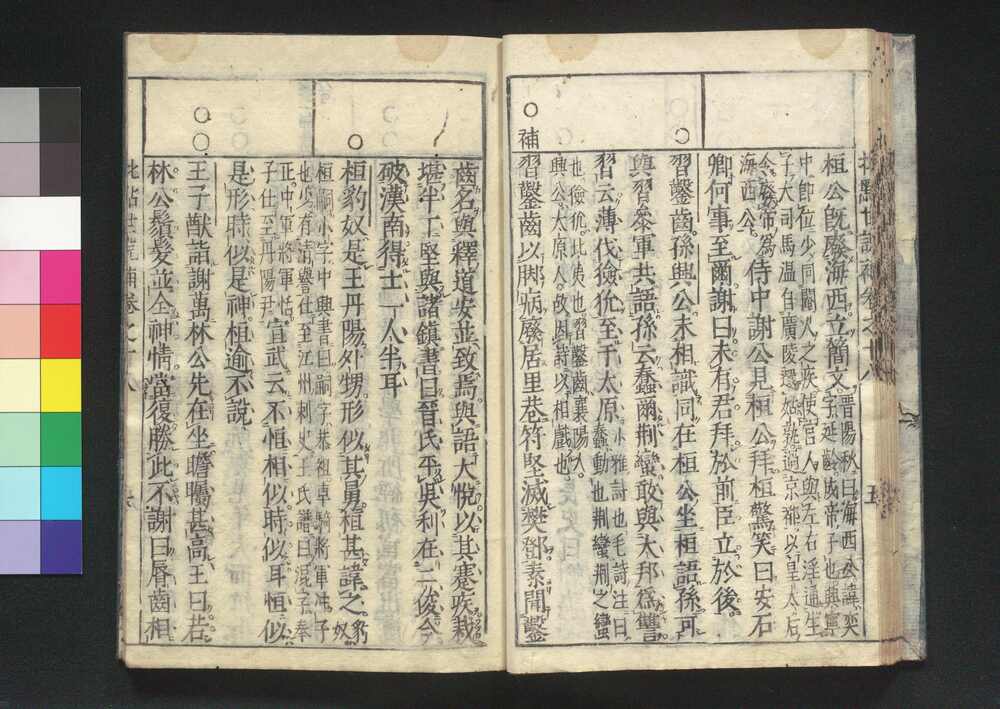 桓公既廢海西立簡文
晉陽秋曰海西公諱奕
字延齡成帝子也興寧
中即位少同閹人之疾使宮人與左右淫通生
子大司馬溫自廣陵還姑孰過京都以皇太后
令廢帝為
海西公
侍中謝公見桓公拜桓驚笑曰安石
卿何事至爾謝曰未有君拜於前臣立於後
習鑿齒孫興公未相識同在桓公坐桓語孫可
與習參軍共語孫云蠢爾荊蠻敢與大邦為讐
習云薄伐獫狁至于太原
小雅詩也毛詩注曰
蠢動也荊蠻荊之蠻
也獫狁北夷也習鑿齒襄陽人
興公太原人故因詩以相戲也
○
補
習鑿齒以脚病廢居里巷符堅滅樊鄧素聞鑿
齒名與釋道安並致焉與語大悅以其蹇疾裁
堪半丁堅與諸鎮書曰晉氏平吳利在二俊今
破漢南得士一人半耳
○
桓豹奴是王丹陽外甥形似其舅桓甚諱之
豹奴
桓嗣小字中興書曰嗣字恭祖車騎將軍沖子
也少有清譽仕至江州刺史王氏譜曰混字奉
正中軍將軍恬
子仕至丹陽尹
宣武云不恒相似時似耳恒似
是形時似是神桓逾不說
○○
王子猷詣謝萬林公先在坐瞻矚甚高王曰若
林公鬚髮並全神情當復勝此不謝曰唇齒相